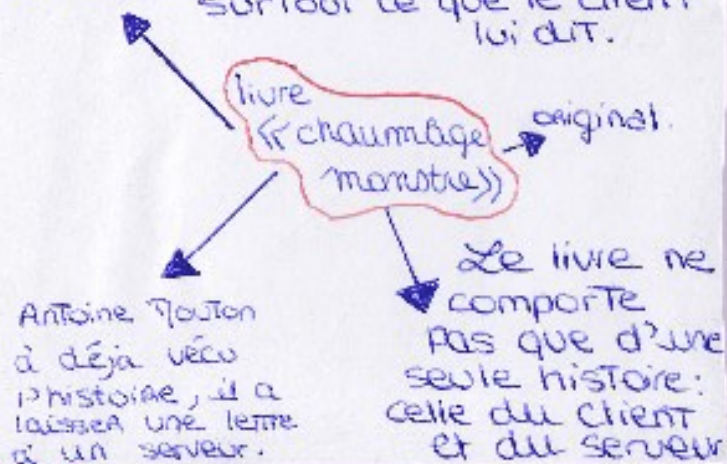 surtout ce que le client
lui dit.
livre
« chaumage
monstre »
original.
Antoine Mouton
à déja vécu
l'histoire, il a
laisser une lettre
a un serveur.
Le livre ne
comporte
pas que d'une
seule histoire:
celle du client
et du serveur